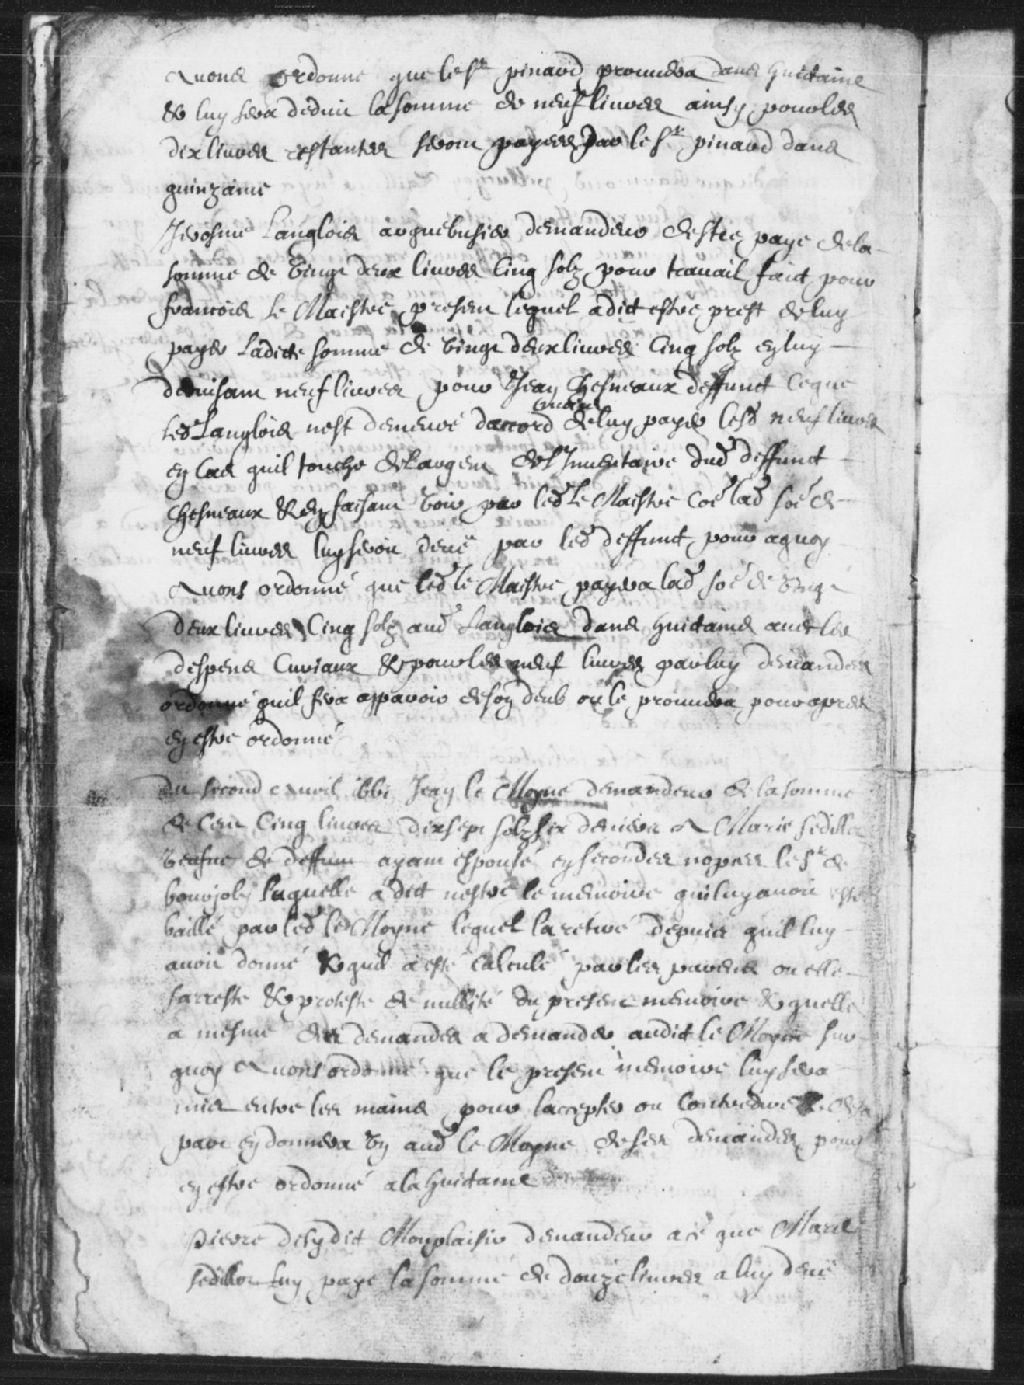 Avons ordonné que le Sr pinard prouvera dans huictaine
& luy sera deduit la somme de neuf livres ainsy pour les
dix livres restantes seront payees par le Sr pinard dans
quinzaine
Jerosme Langlois arquebusier demandeur destre payé de la
somme de vingt deux livres cinq solz pour travail faict pour
francois le Maistre present lequel a dict estre prest de luy
payer Ladicte somme de vingt deux livres cinq solz en luy
deduisant neuf livres pour Jean Chesneaux deffunct Leque
led Langlois nest demeuré daccord de luy payer lesd neuf livres
en cas quil touche de Largent de l'Inventaire dud deffunct
Chesneaux & en faisant voir par led le Maistre coe lad soe de
neuf livres luy seroit deue par led deffunct pour a quoy
Avons ordonné que led le Maistre payera lad soe de vingt
deux livres cinq solz aud Langlois dans huictaine avec les
despens Curiaux & pour les neuf livres par luy demandees
ordonné quil fera apparoir de son deub ou le prouvera pour apres
en estre ordonné
du second Avril 1661 Jean le Moyne demandeur de la somme
de Cent Cinq livres dix sept solz six deniers A Marie sedillot
veufve de deffunt ayant espousé en secondes nopces le Sr de
bonrjoly laquelle a dict nestre le memoire qui luy avoit esté
baillé par led le Moyne lequel la retiré depuis quil luy
avoit donné & quil a esté calculé par les parens ou elle
sarreste & proteste de nullité du present memoire & quelle
a mesme des demandes a demander audict le Moyne sur
quoy Avons ordonné que le present memoire luy sera
mis entre les mains pour laccepter ou contredire & de sa
part en donnera un aud le Moyne de ses demandes pour
en estre ordonné a la huictaine
Pierre dit Monplaisir demandeur a ce que Marie
sedillot luy paye la somme de douze livres a luy deue